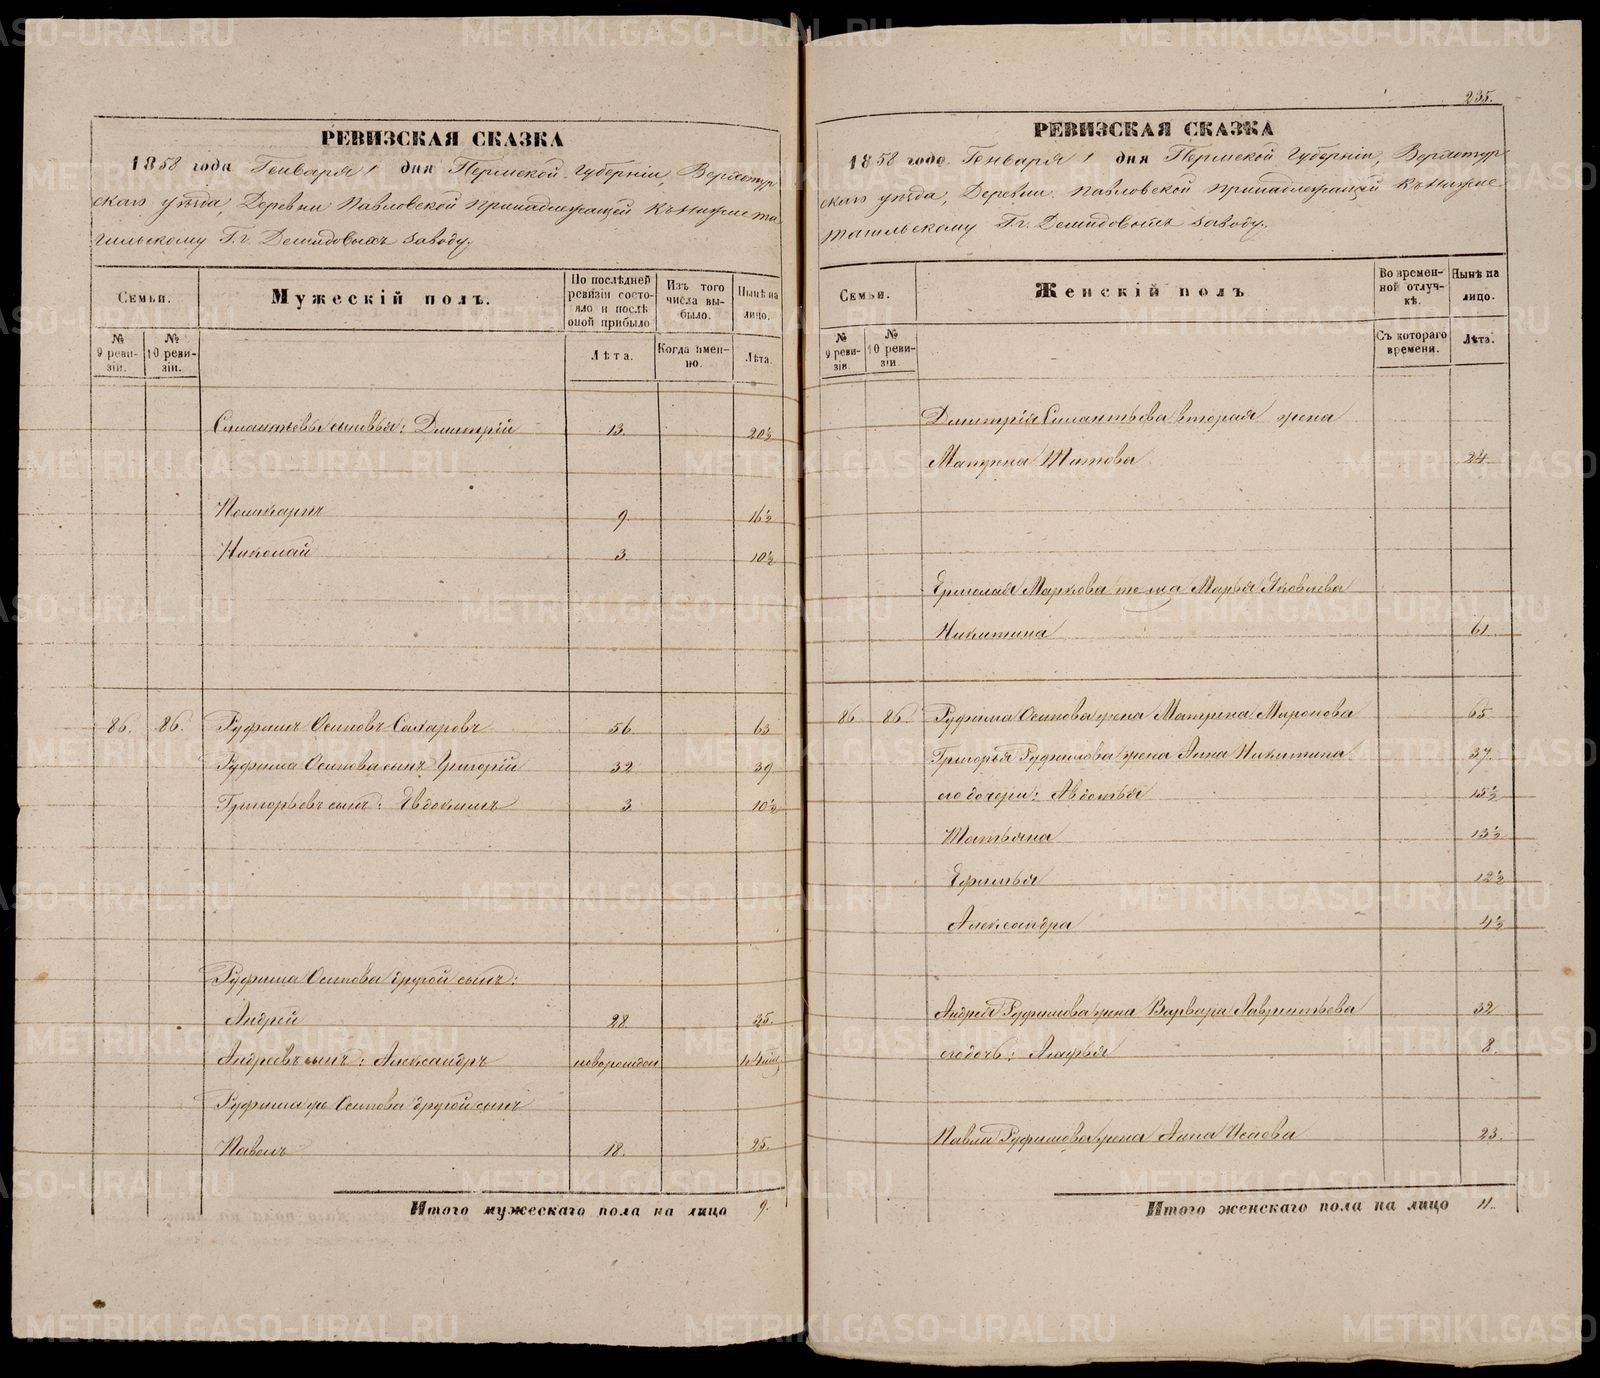 РЕВИЗСКАЯ СКАЗКА
1858 года Генваря 1 дня Пермской Губерніи, Верхотур
скаго уѣзда, Деревни Павловской принадлежащей къ Нижнета
гильскому Г.г. Демидовыхъ заводу.
Семьи.
Мужескій полъ.
По послѣдней ревизіи состояло и послѣ оной прибыло
Изъ того числа выбыло.
Нынѣ на лицо.
№ 9 ревизіи.
№ 10 ревизіи.
Лѣта.
Когда именно.
Лѣта.
сыновья: Дмитрій 13. 20½
Поликарпъ 9 16½
Николай 3. 10½
86. 86. Руфимъ Осиповъ Сахаровъ 56 63
Руфима Осипова сынъ Григорій 32 39
Григорьевъ сынъ: Евдокимъ 3 10½
Руфима Осипова другой сынъ:
Андрей 28 35.
Андреевъ сынъ: Александръ новорожден
Руфима Осипова другой сынъ
Павелъ 18. 25.
Итого мужескаго пола на лицо 9.
235.
РЕВИЗСКАЯ СКАЗКА
1858 года Генваря 1 дня Пермской Губерніи, Верхотур
скаго уѣзда, Деревни Павловской принадлежащей къ Нижне
тагильскому Г.г. Демидовыхъ заводу.
Семьи.
Женскій полъ
Во временной отлучкѣ.
Нынѣ на лицо.
№ 9 ревизіи.
№ 10 ревизіи
Съ котораго времени.
Лѣта.
Дмитрія вторая жена
Титова 24
Маркова Марья Яковлева
Никитина 61
86 86. Руфима Осипова жена Матрена Миронова 65
Григорья Руфимова жена Анна Никитина 37.
его дочери: Авдотья 15½
Татьяна 13½
Ефимья 12½
Александра 4½
Андрея Руфимова жена Варвара Лаврентьева 32
его дочь: 8.
Павла Руфимова жена Анна 23.
Итого женскаго пола на лицо 11.
METRIKI.GASO-URAL.RU